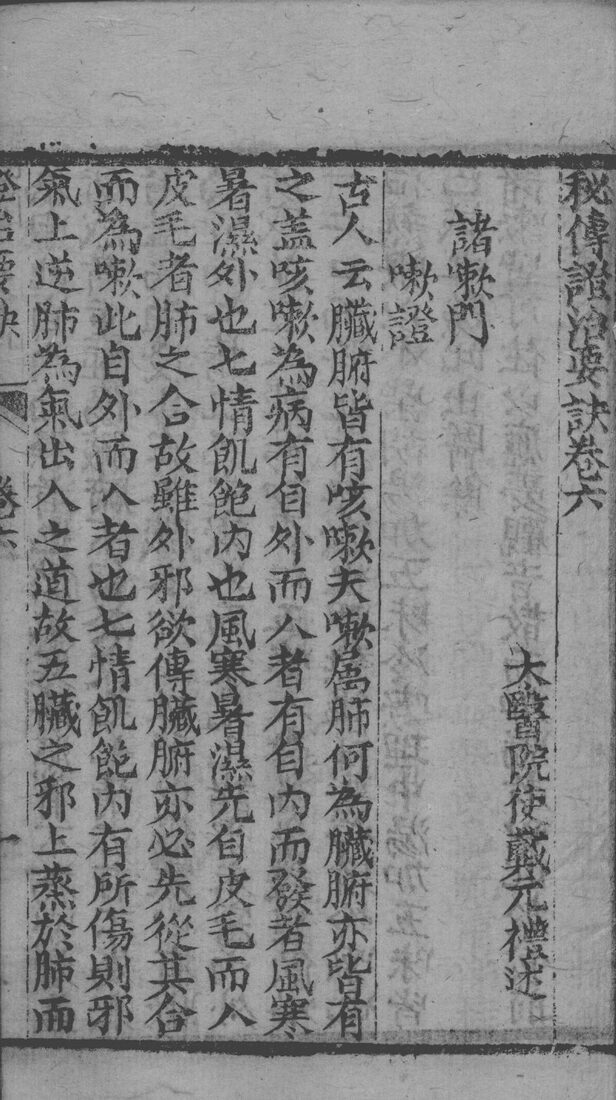 秘傳證治要訣卷六
大醫院使戴元禮述
諸嗽門
嗽證
古人云臟腑皆有咳嗽夫嗽屬肺何為臟腑亦皆有
之盖咳嗽為病有自外而入者有自内而發者風寒
暑濕外也七情飢飽内也風寒暑濕先自皮毛而入
皮毛者肺之合故雖外邪欲傳臟腑亦必先從其合
而為嗽此自外而入者也七情飢飽内有所傷則邪
氣上逆肺為氣出入之道故五臟之邪上蒸於肺而
證治要訣
卷六
一